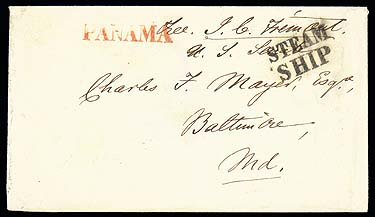 PANAMA
Free. J. C. Frémont,
U. S. S
STEAM
SHIP
Charles F. Mayer, Esqr,
Baltimore,
Md.